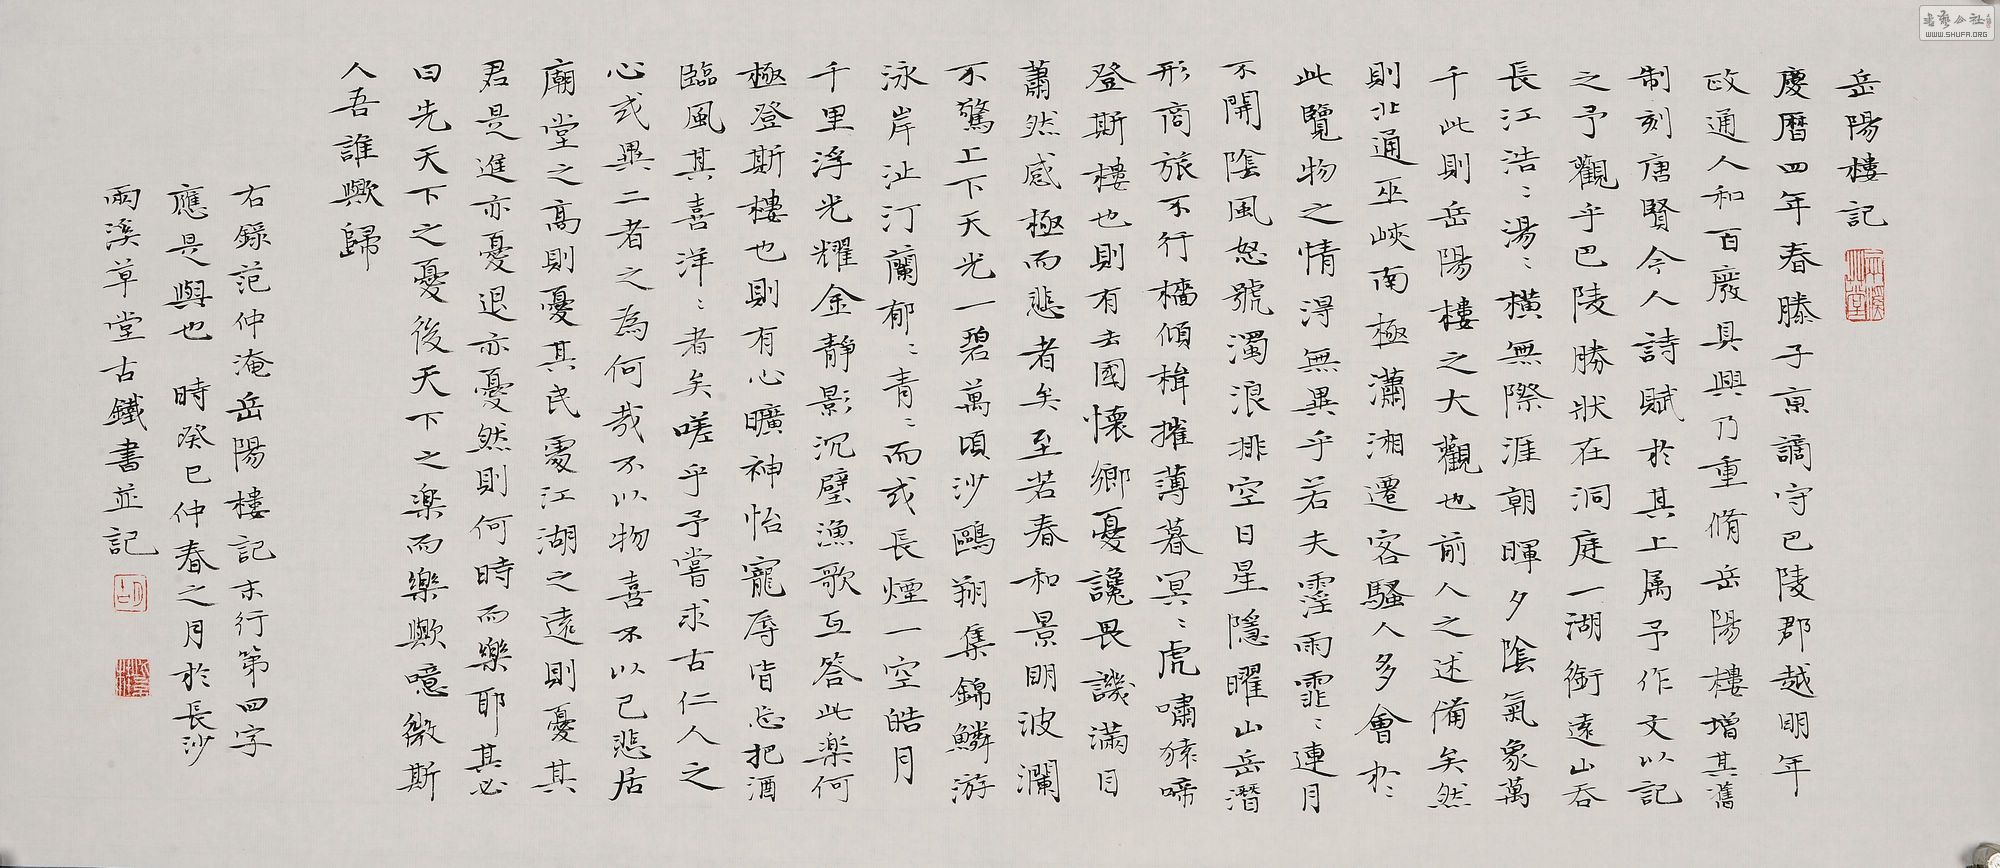 岳陽樓記
慶曆四年春滕子京謫守巴陵郡越明年
政通人和百廢具興乃重脩岳陽樓增其舊
制刻唐賢今人詩賦於其上属予作文以記
之予觀乎巴陵勝狀在洞庭一湖銜遠山吞
長江浩〻湯〻橫無際涯朝暉夕陰氣象萬
千此則岳陽樓之大觀也前人之述備矣然
則北通巫峽南極瀟湘遷客騷人多會於〻
此覽物之情得無異乎若夫霪雨霏〻連月
不開陰風怒號濁浪排空日星隱曜山岳潛
形商旅不行檣傾楫摧薄暮冥〻虎嘯猿啼
登斯樓也則有去國懷鄉憂讒畏譏滿目
蕭然感極而悲者矣至若春和景明波瀾
不驚上下天光一碧萬頃沙鷗翔集錦鱗游
泳岸沚汀蘭郁〻青〻而或長煙一空皓月
千里浮光耀金靜影沉璧漁歌互答此樂何
極登斯樓也則有心曠神怡寵辱皆忘把酒
臨風其喜洋〻者矣嗟乎予嘗求古仁人之
心或異二者之為何哉不以物喜不以己悲居
廟堂之高則憂其民處江湖之遠則憂其
君是進亦憂退亦憂然則何時而樂耶其必
曰先天下之憂後天下之楽而樂歟噫微斯
人吾誰歟歸
右錄范仲淹岳陽樓記末行第四字
應是與也 時癸巳仲春之月於長沙
雨溪草堂古鐵書並記
書藝公社
WWW.SHUFA.ORG